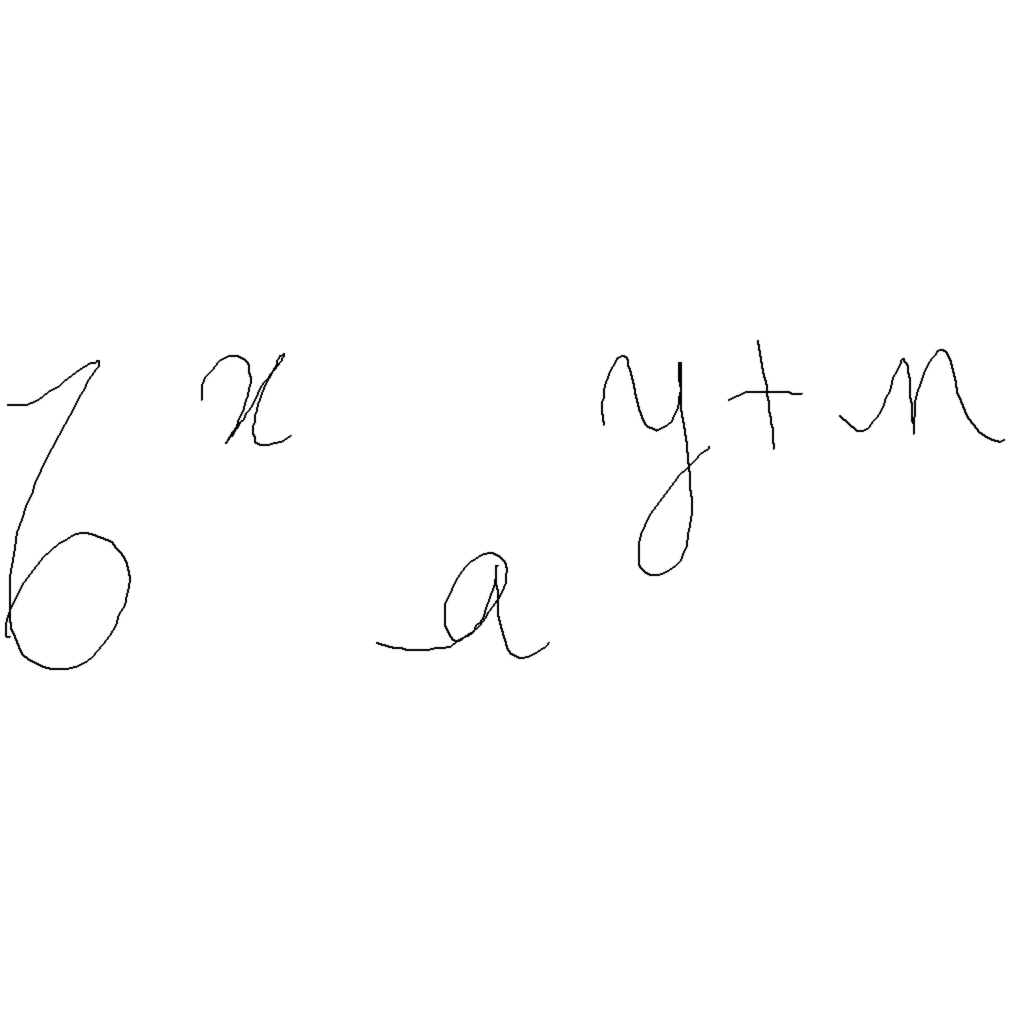 6^x a^{y+n}